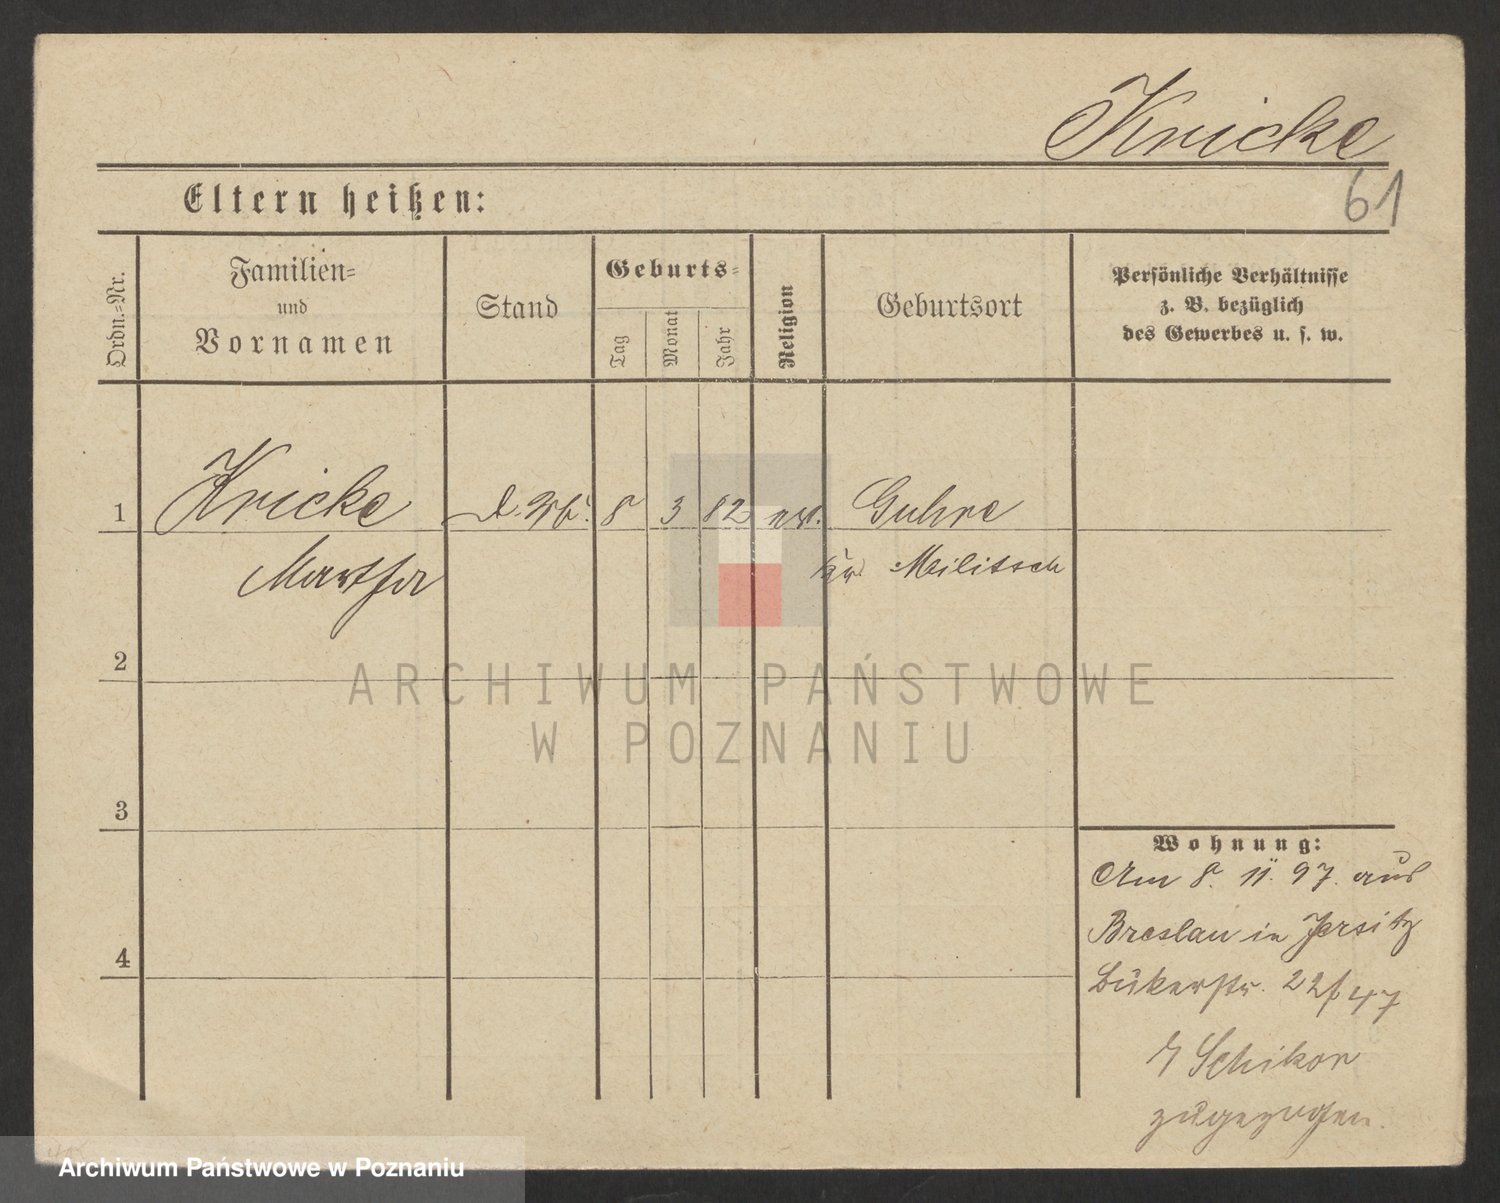 Kricke
61
Eltern heißen:
Ordn.-Nr.
Familien-
und
Vornamen
Stand
Geburts-
Tag
Monat
Jahr
Religion
Geburtsort
Persönliche Verhältnisse
z. B. bezüglich
des Gewerbes u. s. w.
1
Kricke
8
3
82
ev.
Guhre
Martha
Kr. Militsch
2
ARCHIWUM PAŃSTWOWE
W POZNANIU
3
Wohnung:
Am 8. 11. 97. aus
Breslau in Jersitz
4
Bukerstr. 22/47
Schikor
zugezogen.
Archiwum Państwowe w Poznaniu